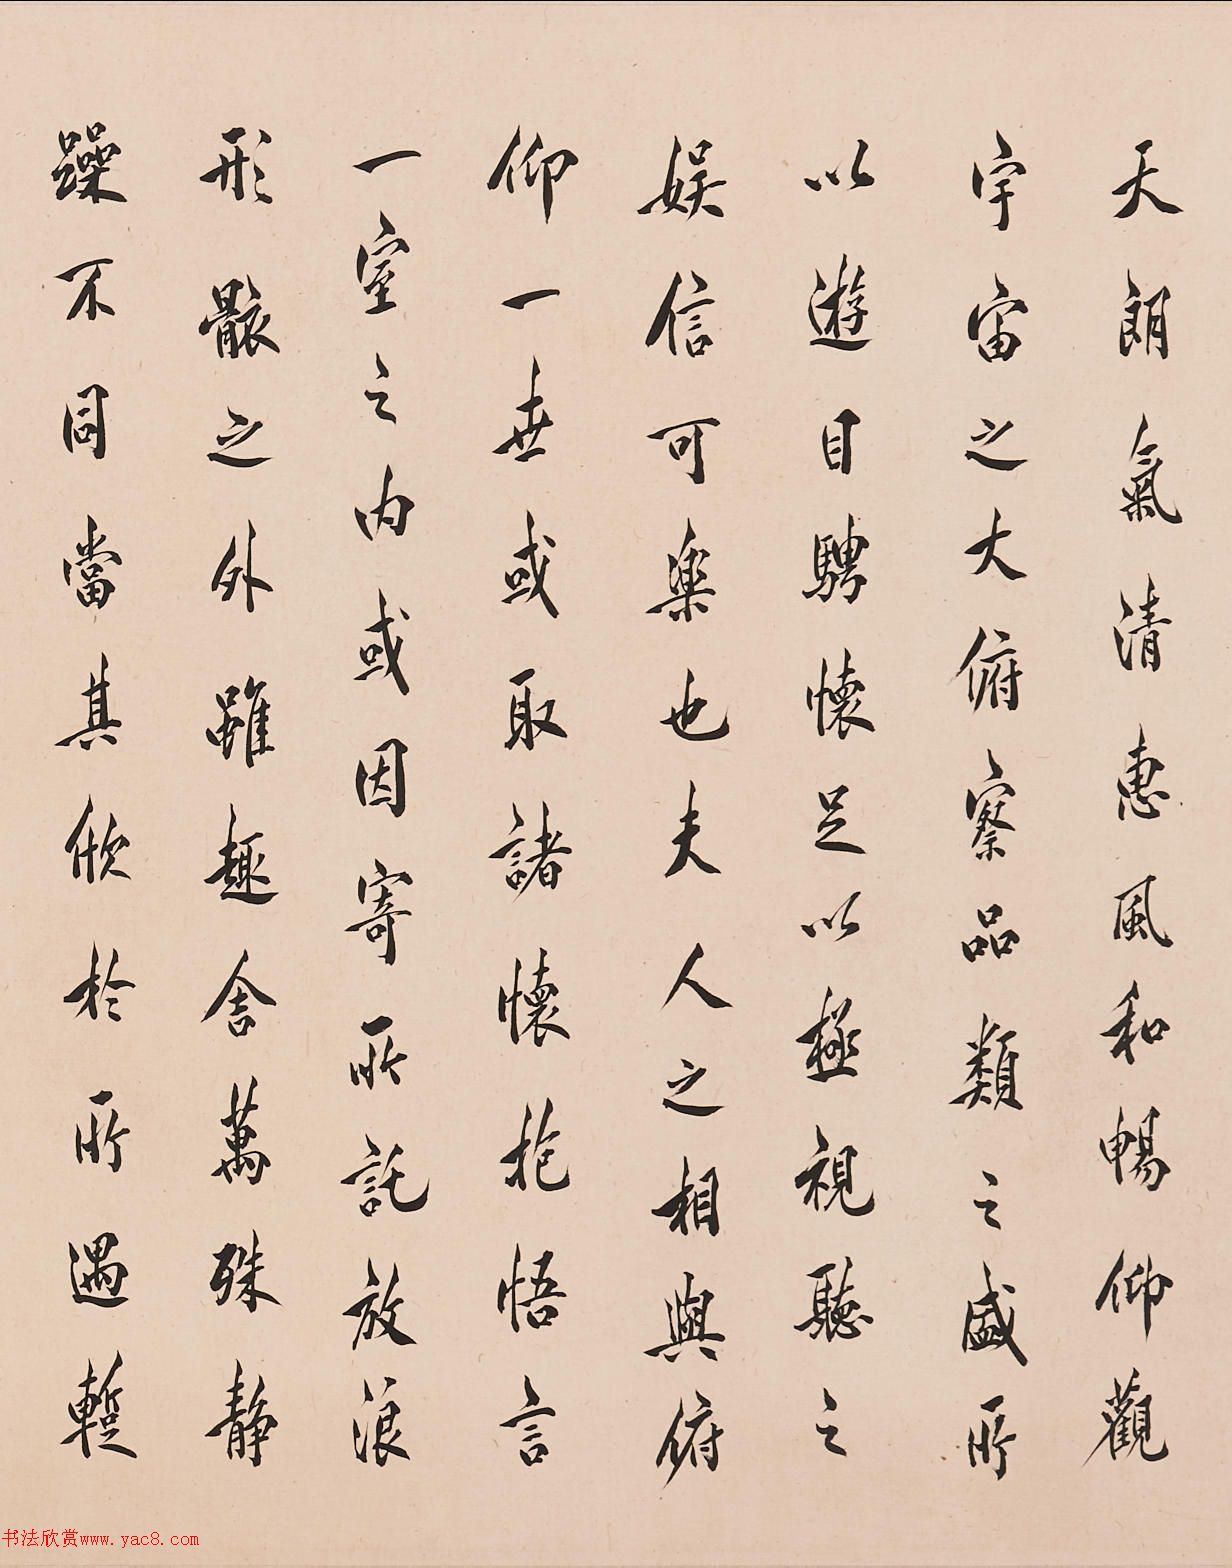 天朗氣清惠風和暢仰觀
宇宙之大俯察品類之盛所
以遊目騁懷足以極視聽之
娛信可樂也夫人之相與俯
仰一世或取諸懷抱悟言
一室之內或因寄所託放浪
形骸之外雖趣舍萬殊靜
躁不同當其欣於所遇蹔
书法欣赏www.yac8.com